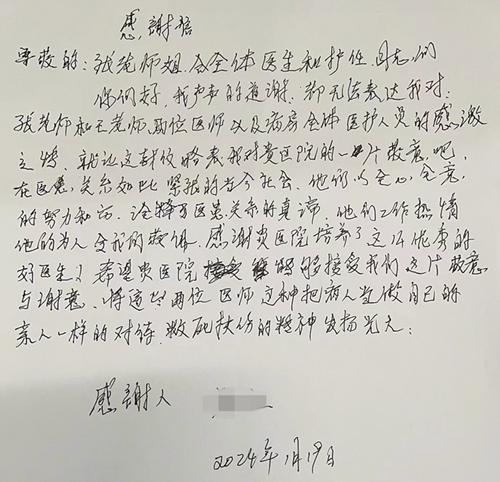 感謝信
尊敬的：张苑师姐、全体医生和护性同志们
你们好，我声声的道谢，都无法表达我对：
张老师和王老师，两位医师以及病房全体医护人员的感激
之情，就让这封信略表我对贵医院的一片敬意吧，
在医患关系如此紧张的当今社会，他们以全心全意，
的努力和诠释了医患关系的真谛，他们工作热情
他的为人令我的敬佩，感谢贵医院培养了这么优秀的
好医生！希望贵医院能够接受我们这片敬意
与谢意、将这两位医师这种把病人当做自己的
亲人一样的对待，救死扶伤的精神发扬光大：
感謝人
2024年1月19日